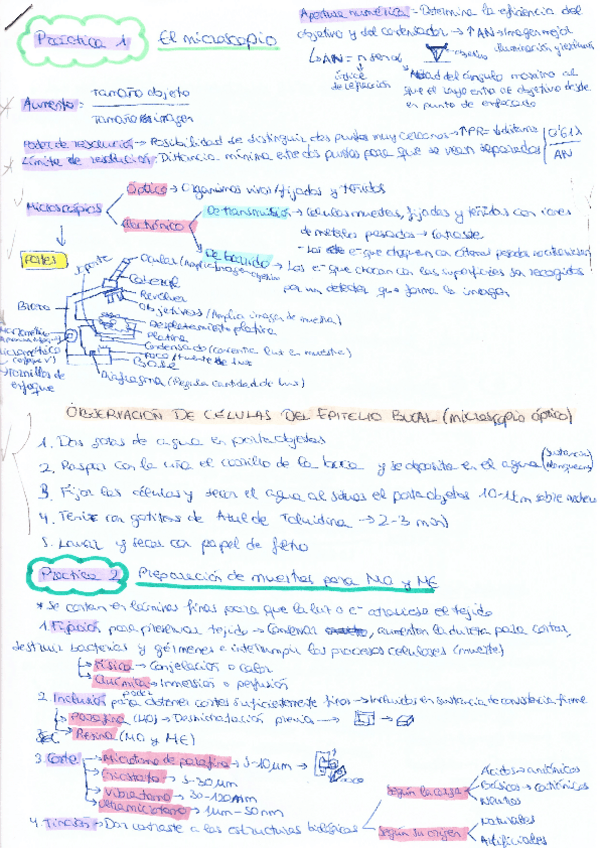 Práctica 1 El microscopio
Apertura numérica - Determina la eficiencia del
objetivo y del condensador → ↑AN → Imagen mejor
↳ AN = n senα
índice
de refracción
Mitad del ángulo máximo al
que el rayo entra al objetivo desde
un punto de enfocado
Aumento = Tamaño objeto
Tamaño imagen
Poder de resolución → Posibilidad de distinguir dos puntos muy cercanos → ↑PR =
0'61λ
AN
Límite de resolución - Distancia mínima entre dos puntos para que se vean separados
Microscopios
Óptico → Organismos vivos/fijados y
Electrónico
De transmisión → Células muertas, fijadas y teñidas con iones
de metales pesados → Contraste
- Los e- que choquen con átomos pesados
De barrido → Los e- que chocan con las superficies son recogidos
por un detector que forma la imagen
Partes
Soporte
Ocular
Cabezal
Revolver
Objetivos (Amplía imagen de muestra)
Desplazamiento platina
Platina
Condensador (concentra luz en muestra)
Foco/fuente de luz
Base
Diafragma (Regula cantidad de luz)
Brazo
Tornillos de
enfoque
OBSERVACIÓN DE CÉLULAS DEL EPITELIO BUCAL (microscopio óptico)
1. Dos gotas de agua en portaobjetos
2. Raspar con la uña el carrillo de la boca y se deposita en el agua (Sustancia blanquecina)
3. Fijar las células y secar el agua al situar el portaobjetos 10-15cm sobre
4. Teñir con gotitas de Azul de Toluidina → 2-3 min)
5. Lavar y secar con papel de filtro
Práctica 2 Preparación de muestras para MO y ME
* Se cortan en láminas finas para que la luz o e- atraviese el tejido
1. Fijación para preservar tejido → Conservar, aumentan la dureza para cortar,
destruir bacterias y gérmenes e interrumpir los procesos celulares (muerte)
Física → Congelación o calor
Química → Inmersión o perfusión
2. Inclusión para poder obtener cortes suficientemente finos → Incluirlos en sustancia de consistencia firme
Parafina (MO) → Deshidratación previa →
Resina (MO y ME)
3. Corte
Microtomo de parafina → 5-10μm →
Criostato → 5-30μm
Vibratomo → 30-120μm
Ultramicrotomo → 1μm-50nm
4. Tinción → Dar contraste a las estructuras biológicas
Según la carga
Ácidos → aniónicos
Básicos → catiónicos
Neutros
Según su origen
Naturales
Artificiales